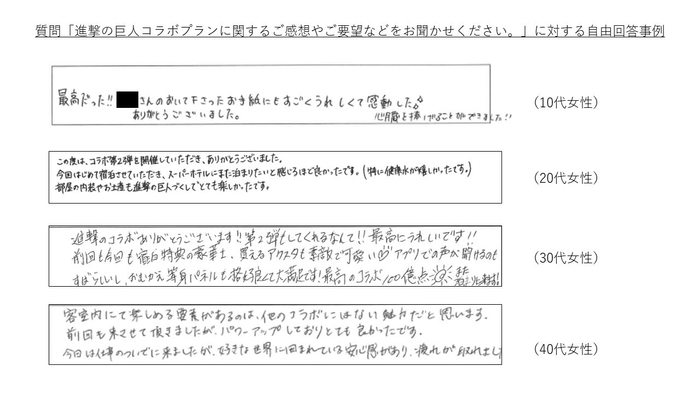 質問「進撃の巨人コラボプランに関するご感想やご要望などをお聞かせください。」に対する自由回答事例
最高だった!! さんのおいて下さったお手紙にもすごくうれしくて感動した
ありがとうございました。
心臓を捧げることができました!!
（10代女性）
この度は、コラボ第2弾を開催していただき、ありがとうございました。
今回はじめて宿泊させていただき、スーパーホテルにまた泊まりたいと感じるほど良かったです。(特に健康水が嬉しかったです。)
部屋の内装やお土産も進撃の巨人づくしでとても楽しかったです。
（20代女性）
進撃のコラボありがとうございます!! 第2弾もしてくれるなんて!! 最高にうれしいです!!
前回も今回も宿泊特典の豪華さ、買えるアクスタも素敵で可愛い アプリでの声が聞けるのも
すばらしいし、おむかえ等身パネルも 大満足です! 最高のコラボ 100億点
（30代女性）
客室内にて楽しめる要素があるのは、他のコラボにはない魅力だと思います。
前回も来させて頂きましたが、パワーアップしておりとても良かったです。
今日は仕事のついでに来ましたが、好きな世界に囲まれている安心感があり、疲れが取れまし
（40代女性）